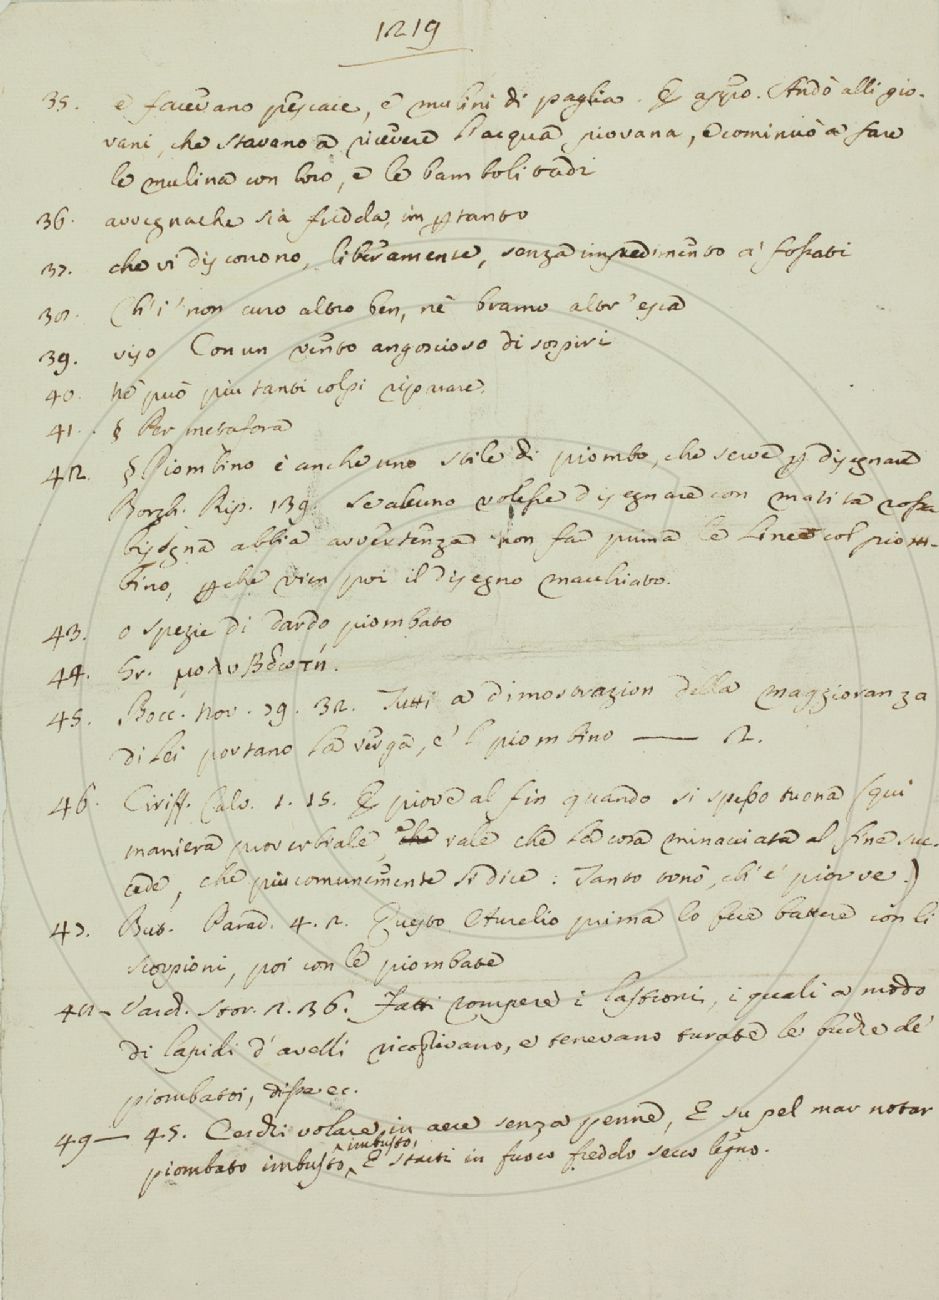 1219
35. e facevano pescaie, e mulini di paglia. E appo. Andò alli gio-
vani, che stavano a ricevere l'acqua piovana, e cominciò a fare
le mulina con loro, e le bamboli tadi
36. avvegnache sia fredda, im ptanto
37. che vi discorrono, liberamente, senza impedimento a' fossati
38. Ch'i' non curo altro ben, nè bramo altr'esca
39. viso Con un vento angoscioso di sospiri
40. Nè può più tanti colpi riparare.
41. § Per metafora
42. § Piombino è anche uno stile di piombo, che serve p disegnare
Borgh. Rip. 139. Se alcuno volesse disegnare con matita rossa
bisogna abbia avvertenza non far prima le linee col piom-
bino, pchè vien poi il disegno macchiato.
43. o spezie di dardo piombato
44. Gr. μολυβδωτή.
45. Bocc. Nov. 79. 32. Tutti a dimostrazion della maggioranza
di lei portano la verga, e 'l piombino —— 2.
46. Ciriff. Calv. 1. 15. E piove al fin quando si spesso tuona (qui
maniera proverbiale, che vale che la cosa minacciata al fine suc-
cede, che più comunemente si dice: Tanto tonò, ch'e' piovve.)
47. But. Parad. 4. 2. Questo Aurelio prima lo fece battere con li
scorpioni, poi con le piombate
48 – Varch. Stor. 2. 36. Fatti rompere i lastroni, i quali a modo
di lapidi d'avelli ricoprivano, e tenevano turate le buche de'
piombatoi, disse ec.
49 — 45. Cerchi volare in aere senza penne, E su pel mar notar
imbusto,
piombato imbusto, E starti in fuoco freddo secco legno.